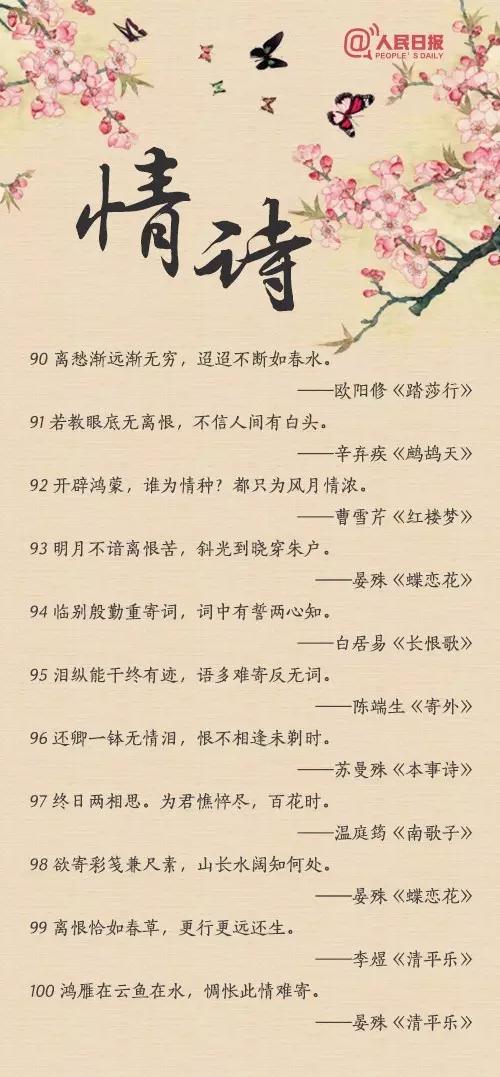 @人民日报
PEOPLE'S DAILY
情诗
90 离愁渐远渐无穷，迢迢不断如春水。
——欧阳修《踏莎行》
91 若教眼底无离恨，不信人间有白头。
——辛弃疾《鹧鸪天》
92 开辟鸿蒙，谁为情种？都只为风月情浓。
——曹雪芹《红楼梦》
93 明月不谙离恨苦，斜光到晓穿朱户。
——晏殊《蝶恋花》
94 临别殷勤重寄词，词中有誓两心知。
——白居易《长恨歌》
95 泪纵能干终有迹，语多难寄反无词。
——陈端生《寄外》
96 还卿一钵无情泪，恨不相逢未剃时。
——苏曼殊《本事诗》
97 终日两相思。为君憔悴尽，百花时。
——温庭筠《南歌子》
98 欲寄彩笺兼尺素，山长水阔知何处。
——晏殊《蝶恋花》
99 离恨恰如春草，更行更远还生。
——李煜《清平乐》
100 鸿雁在云鱼在水，惆怅此情难寄。
——晏殊《清平乐》